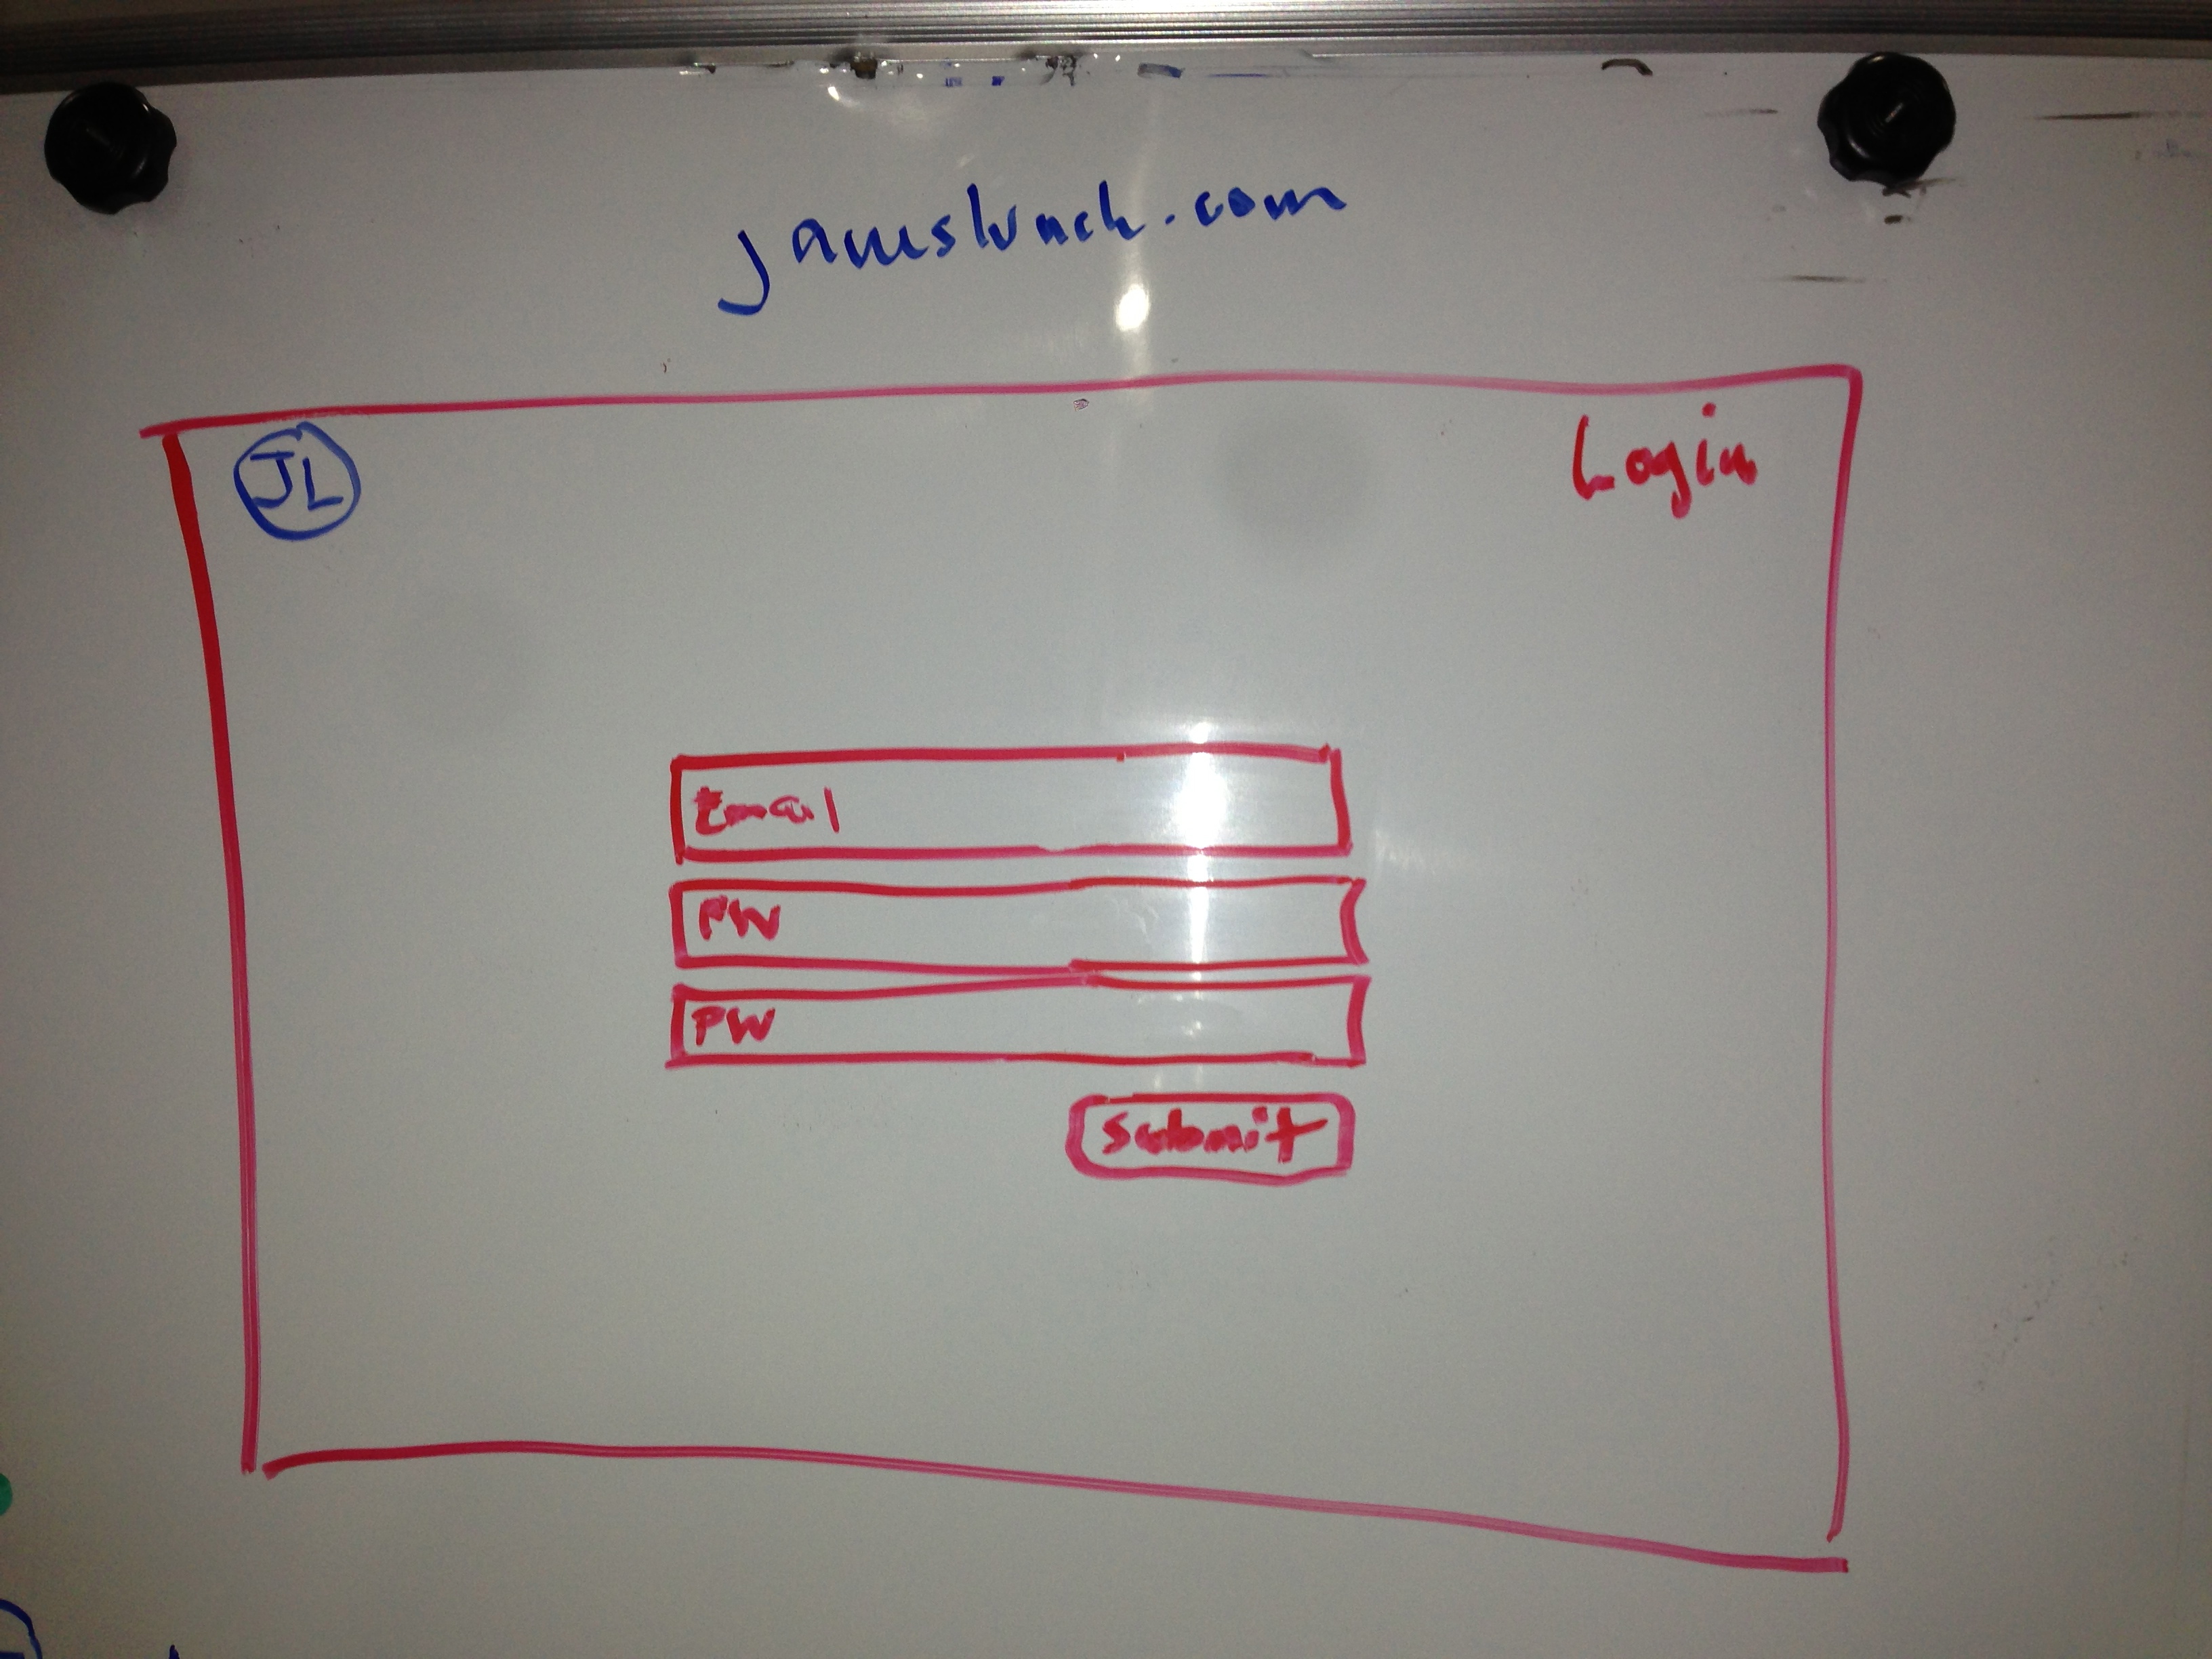 jameslunch.com
JL
Login
Email
PW
PW
Submit